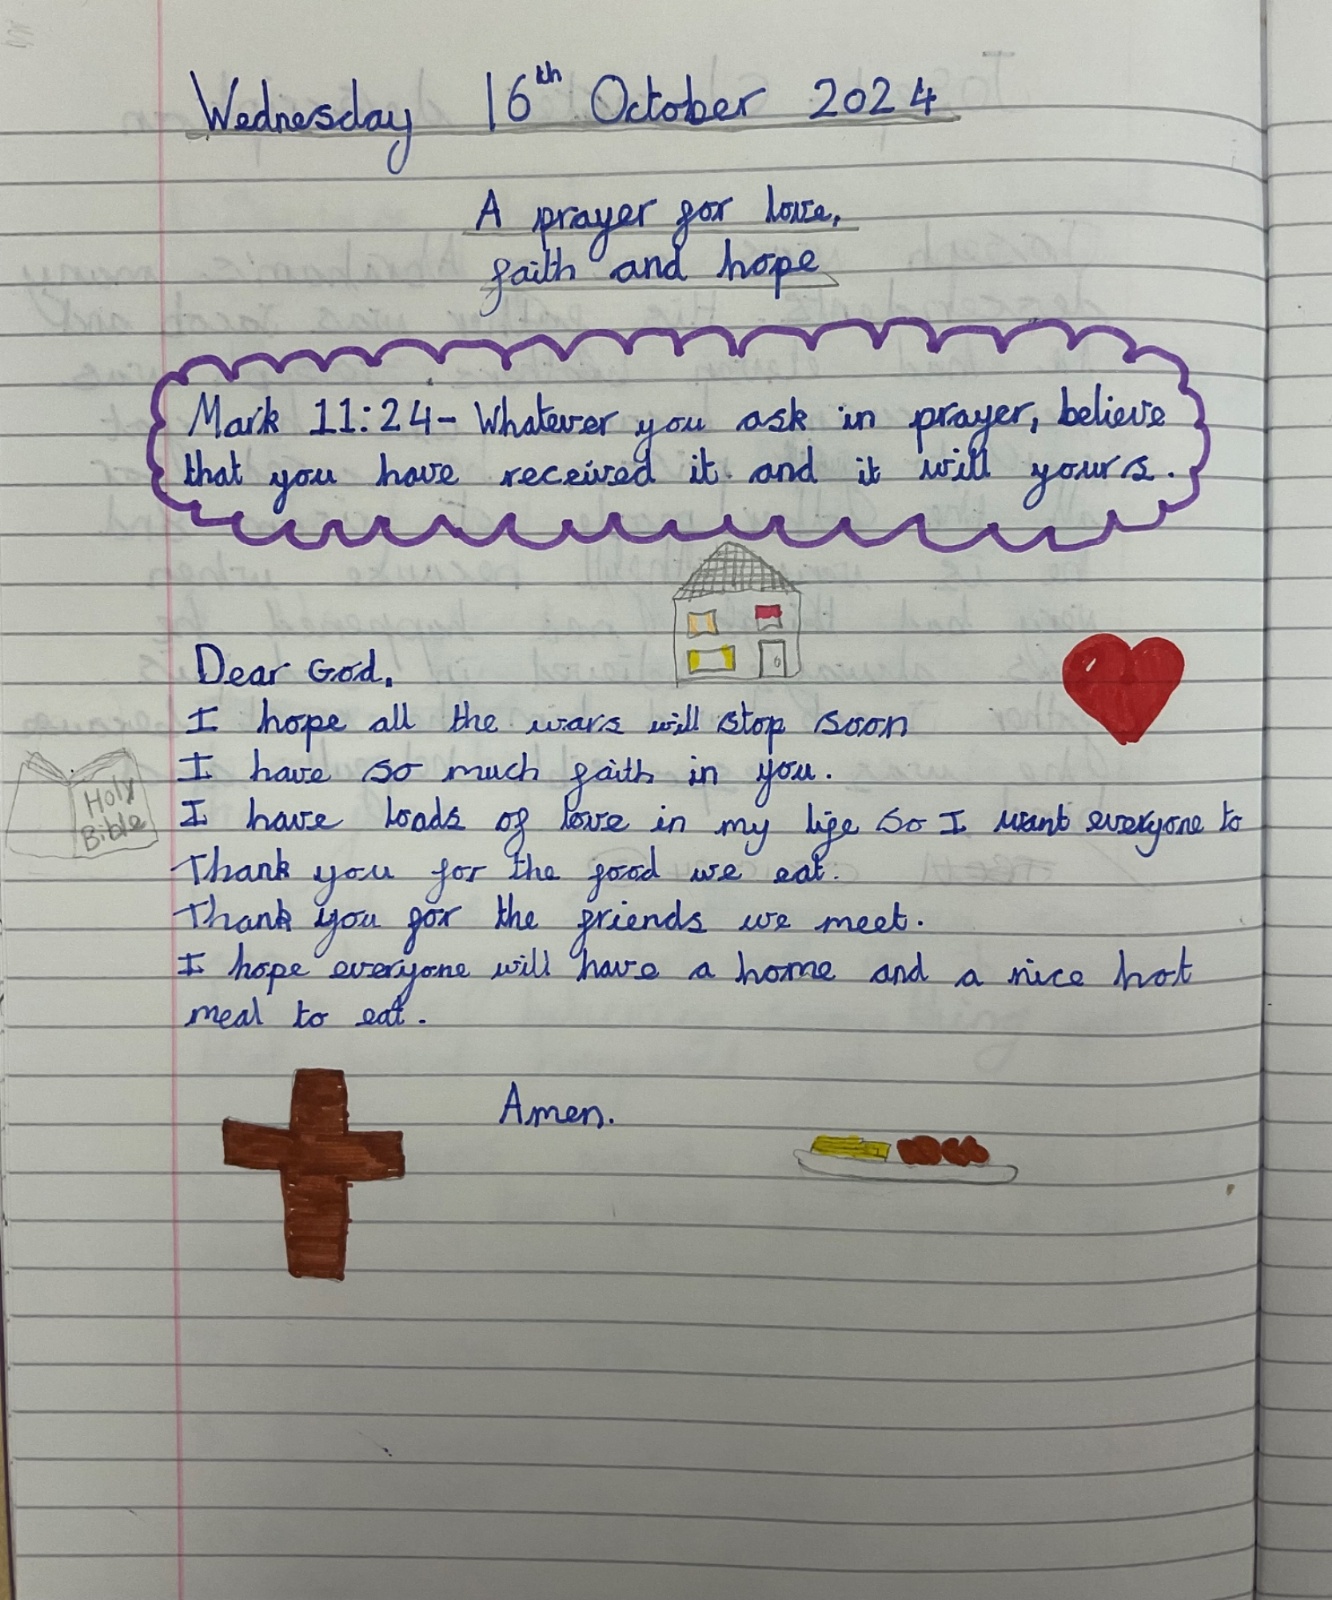 Wednesday 16th October 2024
A prayer for love,
faith and hope
Mark 11:24- Whatever you ask in prayer, believe
that you have received it and it will yours.
Dear God,
I hope all the wars will stop soon
I have so much faith in you.
Holy
Bible
I have loads of love in my life so I want everyone to
Thank you for the food we eat.
Thank you for the friends we meet.
I hope everyone will have a home and a nice hot
meal to eat.
Amen.